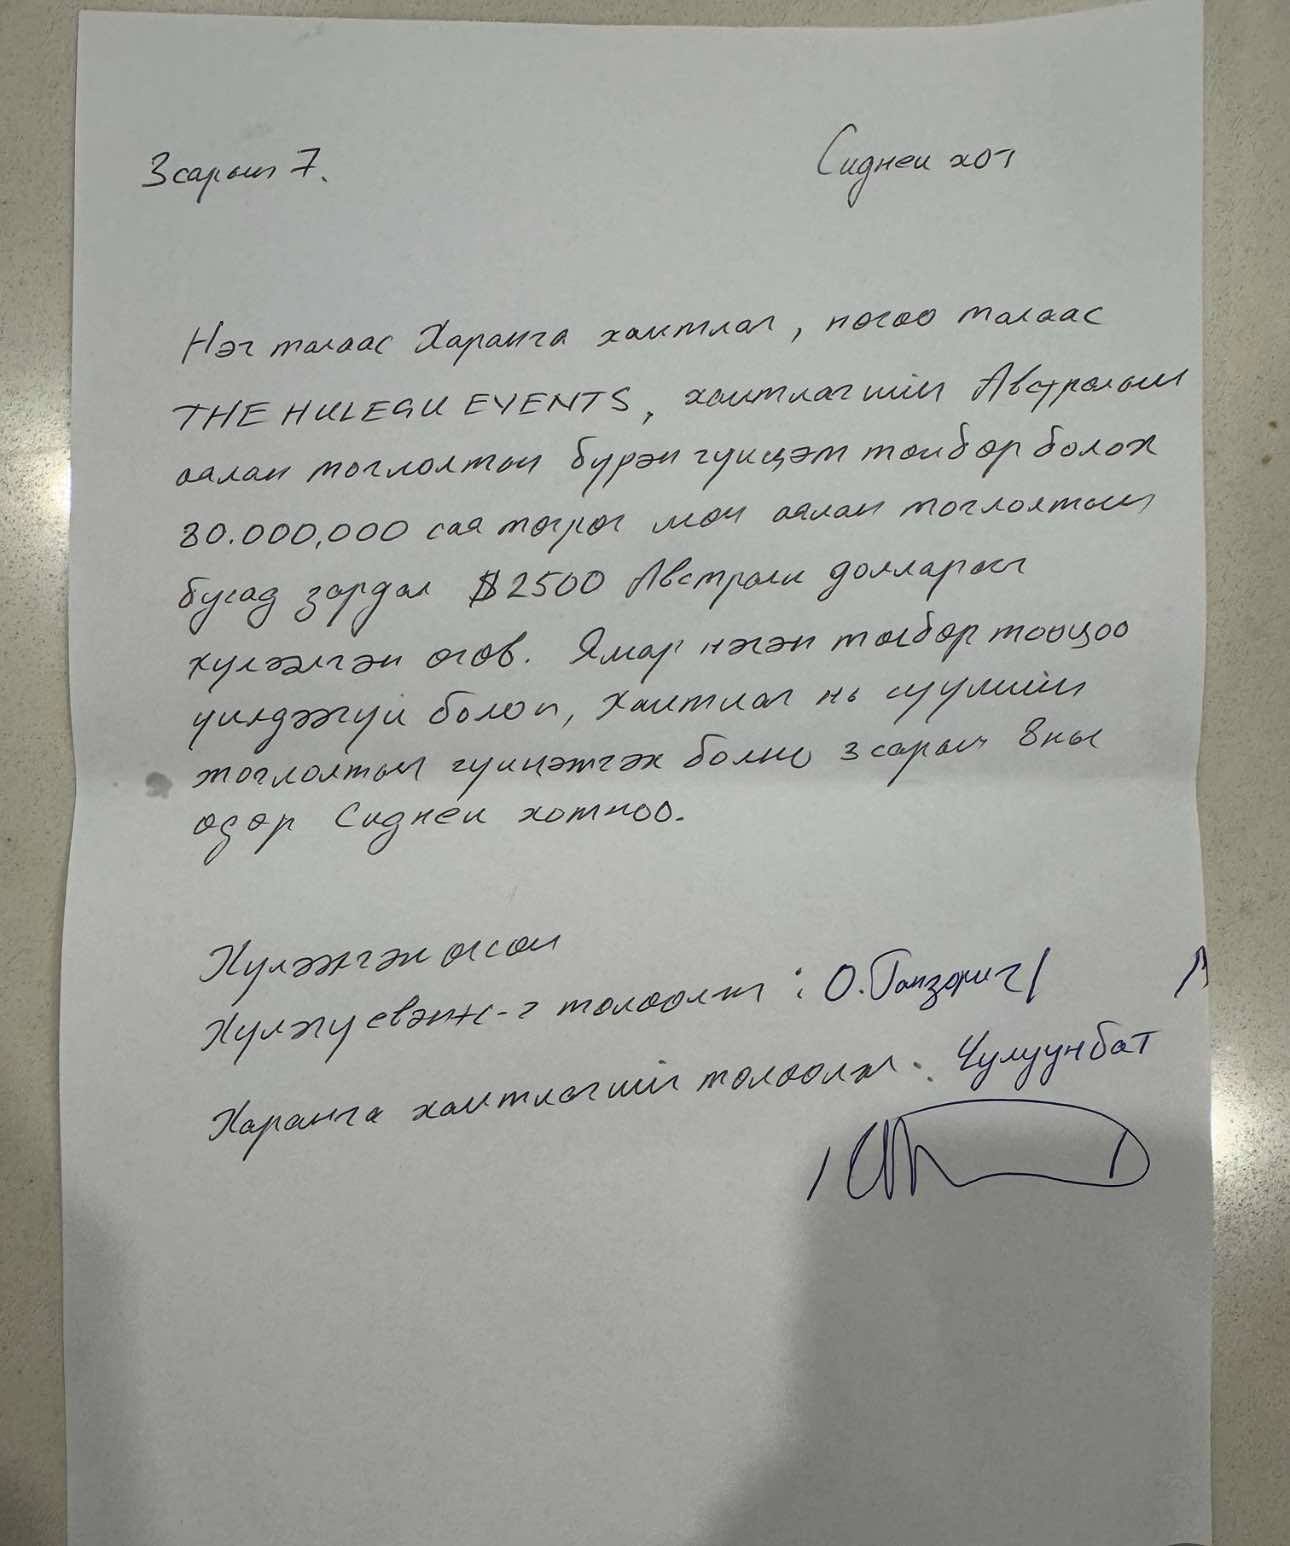 3 сарын 7.
Сидней хот
Нэг талаас Харанга хамтлаг, нөгөө талаас
THE HULEGU EVENTS, хамтлагийн Австралын
аялан тоглолтын бүрэн гүйцэт төлбөр болох
80.000,000 сая төгрөг мөн аялан тоглолтын
бусад зардал $2500 Австрали долларыг
хүлээлгэн өгөв. Ямар нэгэн төлбөр тооцоо
үлдээгүй болно, Хамтлаг нь сүүлийн
тоглолтын гүйцэтгэх болно 3 сарын 8ны
өдөр Сидней хотноо.
Хүлээлгэн өгсөн
Хүлэгү евэнтс-г төлөөлж : О. Ганзориг/
Харанга хамтлагийг төлөөлж : Чулуунбат